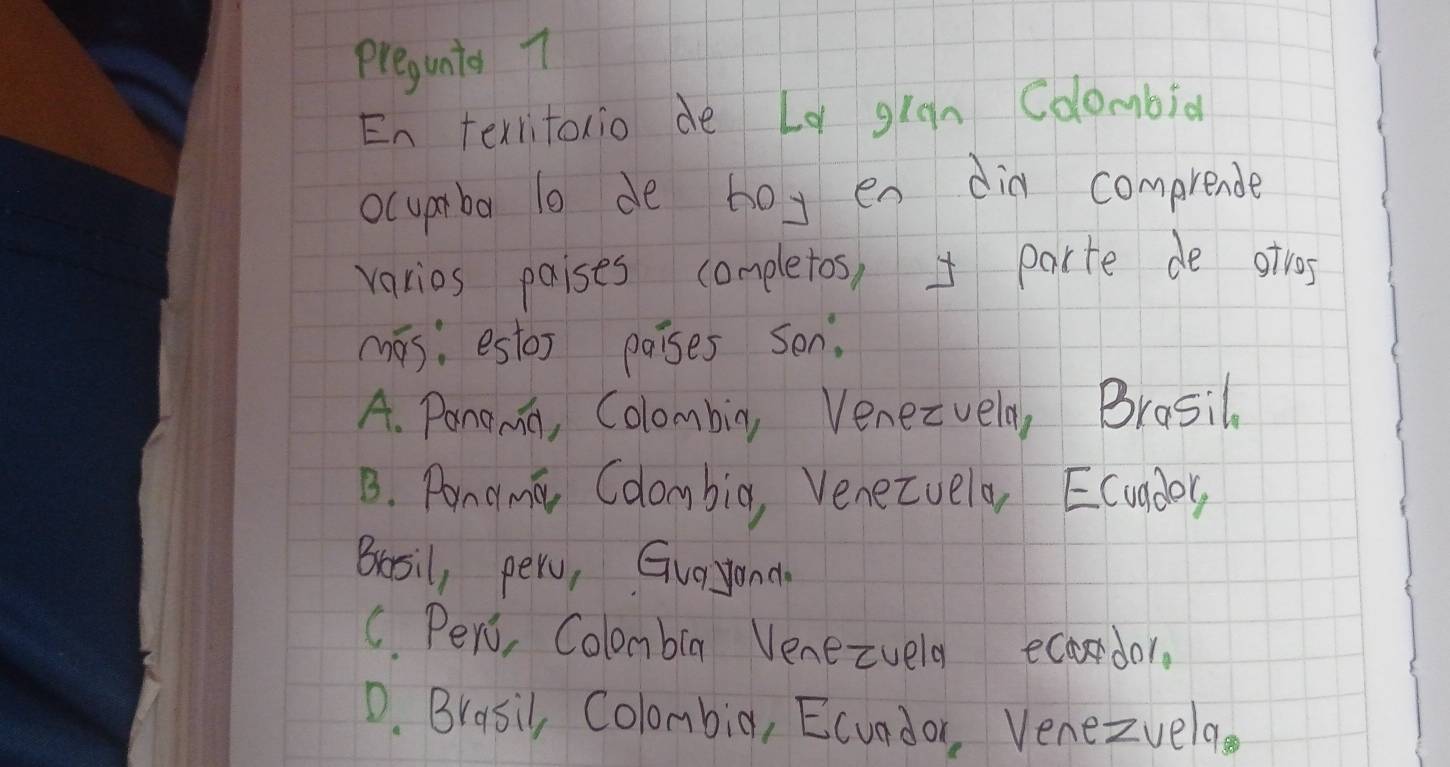 Pregunta 1
En territorio de La gran Colombia
ocupaba lo de hoy en dia comprende
varios paises completos, y parte de otros
más: estos países son:
A. Panamá, Colombia, Venezuela, Brasil.
B. Panamá, Colombia, Venezuela, Ecuador,
Brasil, peru, Guayana.
C. Perú, Colombia Venezuela ecuador.
D. Brasil, Colombia, Ecuador, Venezuela.